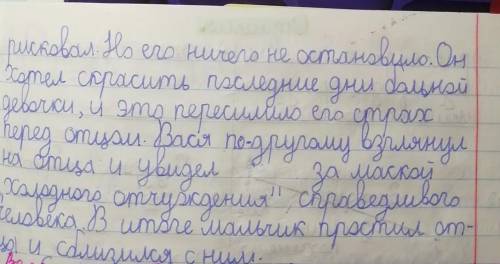 рисковал. Но его ничего не остановило. Он
хотел скрасить последние дни больной
девочки, и это пересилило его страх
перед отцом. Вася по-другому взглянул
на отца и увидел за маской
холодного отчуждения" справедливого
человека. В итоге мальчик простил от-
ца и сблизился с ним.